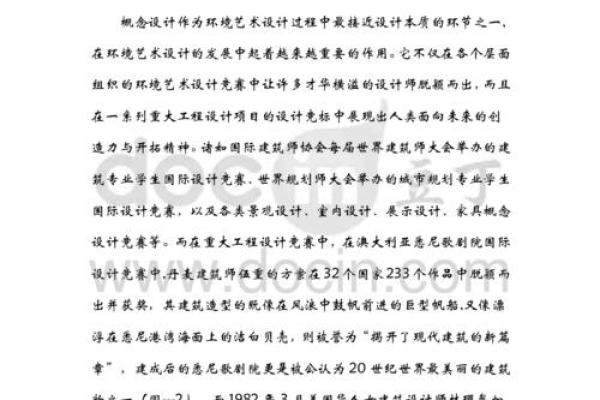 概念设计作为环境艺术设计过程中最接近设计本质的环节之一，
在环境艺术设计的发展中起着越来越重要的作用。它不仅在各个层面
组织的环境艺术设计竞赛中让许多才华横溢的设计师脱颖而出，而且
在一系列重大工程设计项目的设计竞标中展现出人类面向未来的创
造力与开拓精神。诸如国际建筑师协会每届世界建筑师大会举办的建
筑专业学生国际设计竞赛、世界规划师大会举办的城市规划专业学生
国际设计竞赛，以及各类景观设计、室内设计、展示设计、家具概念
设计竞赛等。而在重大工程设计竞赛中，在澳大利亚悉尼歌剧院国际
设计竞赛中,丹麦建筑师伍重的方案在32个国家233个作品中脱颖而
出并获奖，其建筑造型的既像在风浪中鼓帆前进的巨型帆船,又像漂
浮在悉尼港湾海面上的洁白贝壳，则被誉为“揭开了现代建筑的新篇
章”，建成后的悉尼歌剧院更是被公认为20世纪世界最美丽的建筑
物之一（图---2）。而1982年3月美国华人女建筑设计师林璎参加
docin 豆丁
www.docin.com